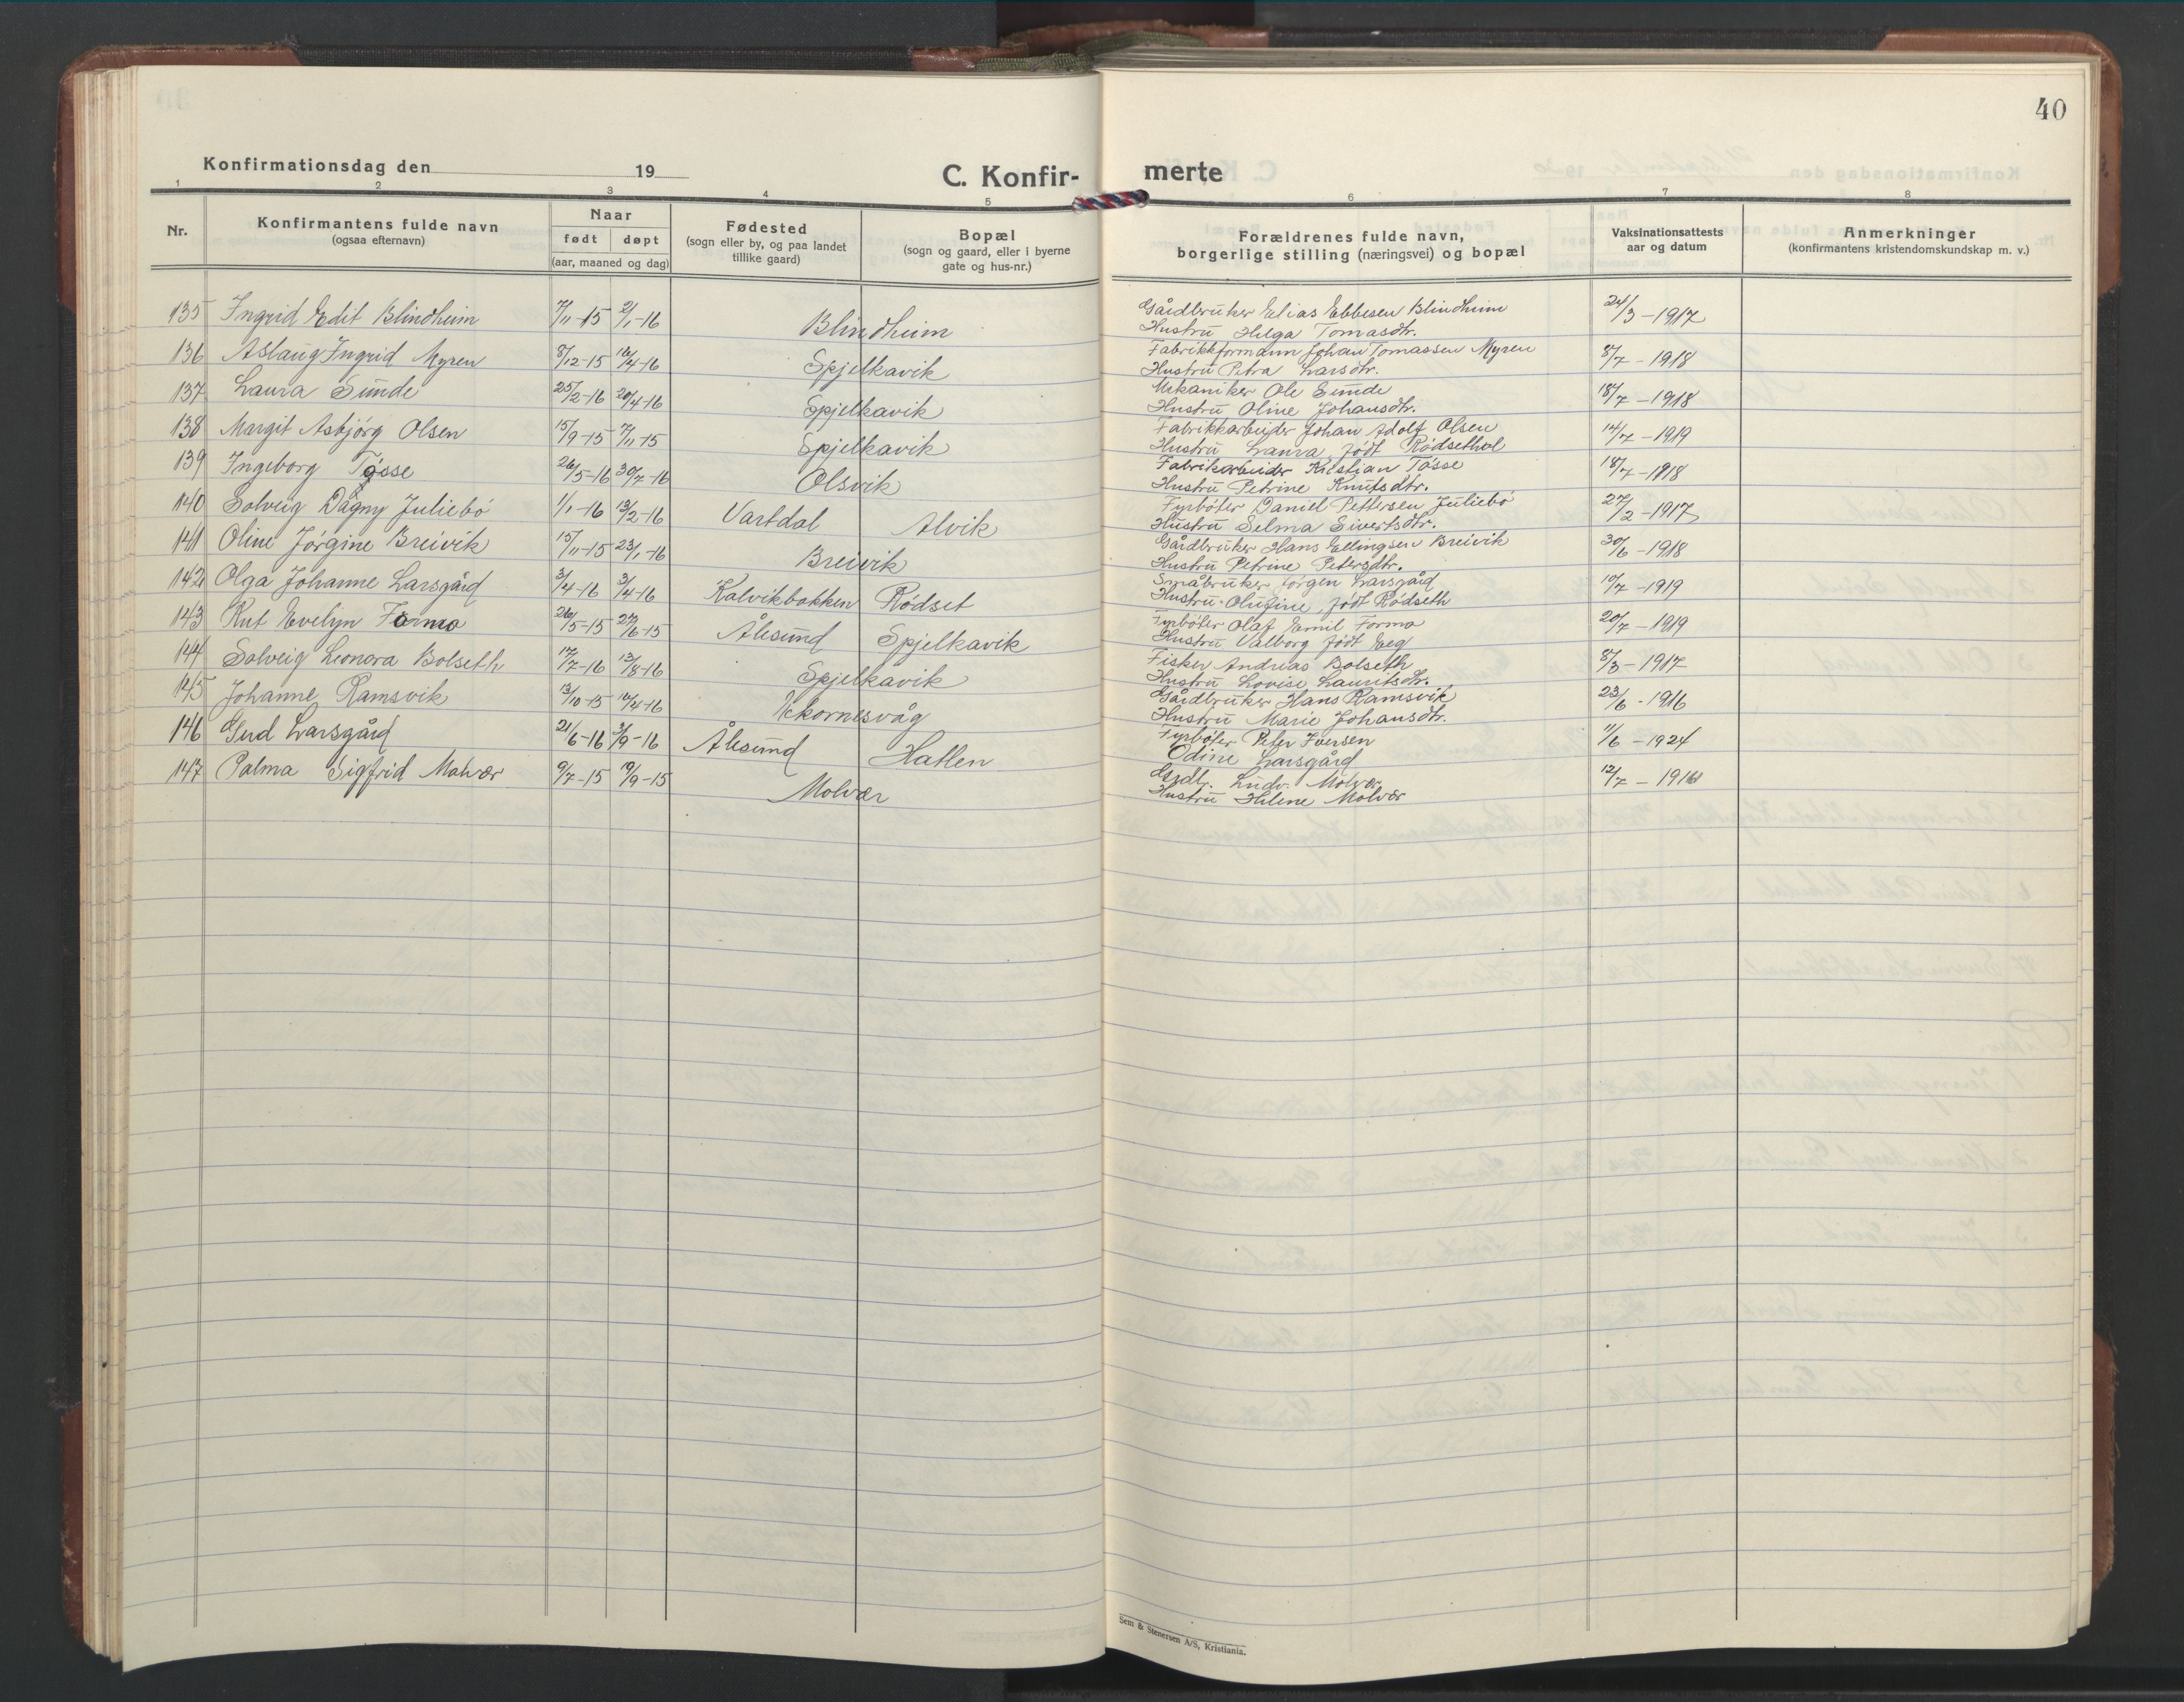 40
Konfirmationsdag den 19
C. Konfir-
merte
1 2 3 4 5 6 7 8
Nr.
Konfirmantens fulde navn
(ogsaa efternavn)
Naar
født døpt
(aar, maaned og dag)
Fødested
(sogn eller by, og paa landet
tillike gaard)
Bopæl
(sogn og gaard, eller i byerne
gate og hus-nr.)
Forældrenes fulde navn,
borgerlige stilling (næringsvei) og bopæl
Vaksinationsattests
aar og datum
Anmerkninger
(konfirmantens kristendomskundskap m. v.)
135 Ingrid Edit Blindheim 7/11-15 2/1-16 Blindheim Gårdbruker Elias Ebbesen Blindheim 24/3-1917
Hustru Helga Tomasdtr.
136 Aslaug Ingrid Myren 8/12-15 16/4-16 Spjelkavik Fabrikkformann Johan Tomassen Myren 8/7-1918
Hustru Petra Larsdtr.
137 Laura Sunde 25/2-16 20/4-16 Spjelkavik Mekaniker Ole Sunde 18/7-1918
Hustru Oline Johansdtr.
138 Margit Asbjörg Olsen 15/9-15 7/11-15 Spjelkavik Fabrikkarbeider Johan Adolf Olsen 14/7-1919
Hustru Laura, födt Rödsethol
139 Ingeborg Tösse 26/5-16 30/7-16 Olsvik Fabrikarbeider Kristian Tösse 18/7-1918
Hustru Petrine Knutsdtr.
140 Solveig Dagny Juliebö 1/1-16 13/2-16 Vartdal Alvik Fyrböter Daniel Pettersen Juliebö 27/2-1917
Hustru Selma Sivertsdtr.
141 Oline Jörgine Breivik 15/11-15 23/1-16 Breivik Gårdbruker Hans Ellingsen Breivik 30/6-1918
Hustru Petrine Petersdtr.
142 Olga Johanne Larsgård 3/4-16 3/4-16 Kalvikbakken Rödset Småbruker Jörgen Larsgård 10/7-1919
Hustru Olufine, födt Rödseth
143 Rut Evelyn Formo 26/5-15 27/6-15 Ålesund Spjelkavik Fyrböter Olaf Emil Formo 20/7-1919
Hustru Valborg födt Eeg
144 Solveig Leonora Bolseth 17/7-16 13/8-16 Spjelkavik Fisker Andreas Bolseth 8/3-1917
Hustru Lovise Lauritsdtr.
145 Johanne Ramsvik 13/10-15 16/4-16 Ikornesvåg Gårdbruker Hans Ramsvik 23/6-1916
Hustru Marie Johansdtr.
146 Gud Larsgård 21/6-16 3/9-16 Ålesund Hatlen Fyrböter Peter Iversen 11/6-1924
Odine Larsgård
147 Palma Sigfrid Molvær 9/7-15 19/9-15 Molvær Grdbr. Ludv. Molvær 12/7-1916
Hustru Helene Molvær
Sem & Stenersen A/S, Kristiania.